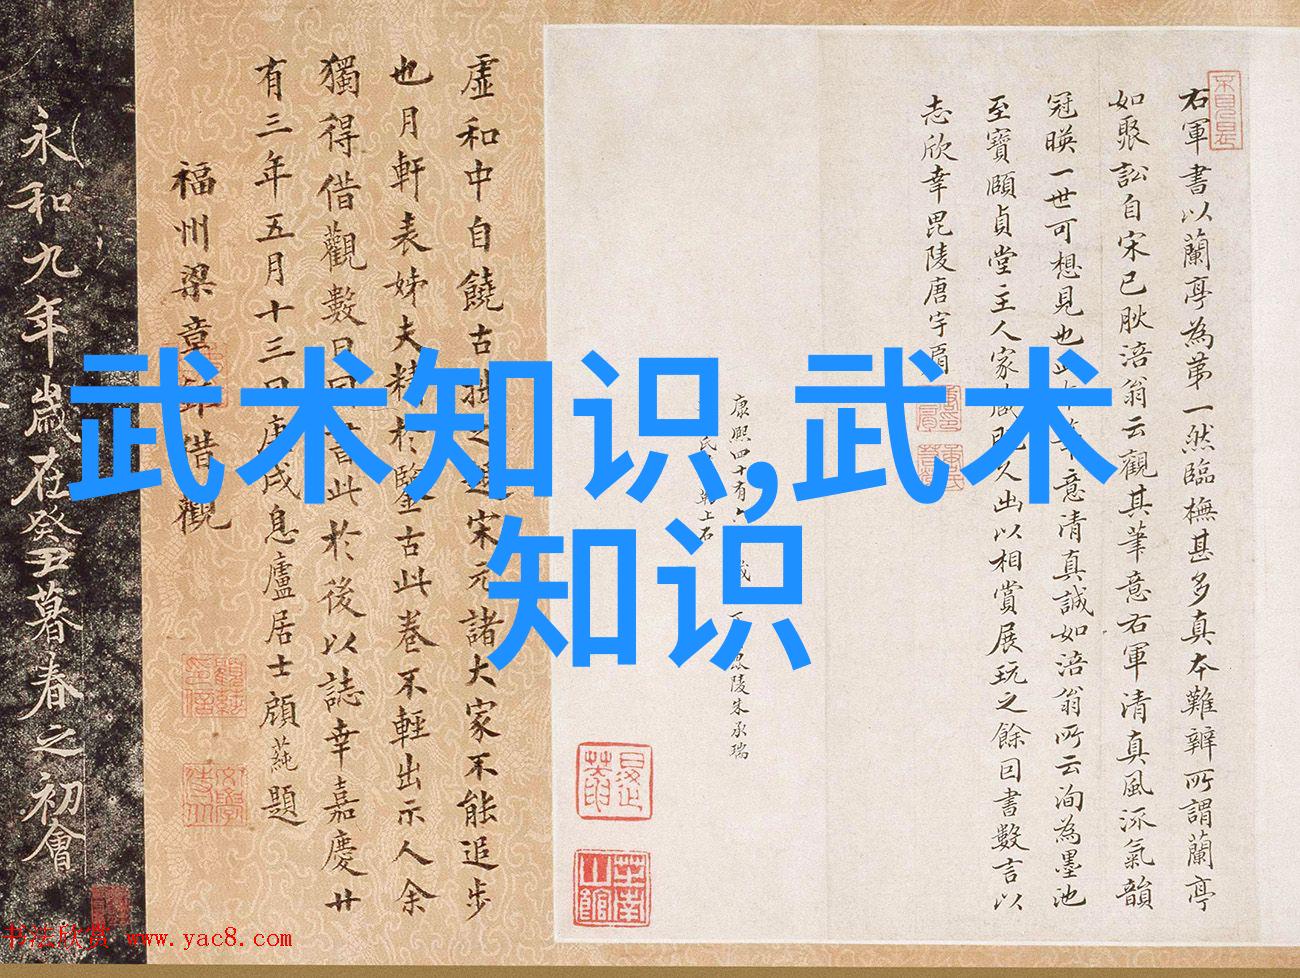 武术知识,武术
知识
右軍書以蘭亭為第一然臨橅甚多真本難辨所謂蘭亭
如聚訟自宋已耿涪翁云觀其筆意右軍清真風流氣韻
冠暎一世可想見也此意清真誠如涪翁所云洵為墨池
至寶頤貞堂主人家藏出以相賞展玩之餘因書數言以
志欣幸毘陵唐宇肩
康熙四十有六陵朱承瑞
氏上石
虛和中自饒古拙之宋元諸大家不能追步
也月軒表姊夫精於鑒古此卷不輕出示人余
獨得借觀數日因書此於後以誌幸嘉慶廿
有三年五月十三日庚戌息廬居士顧蒓題
福州梁章鉅借觀
永和九年歲在癸丑暮春之初會
书法欣赏 www.yac8.com